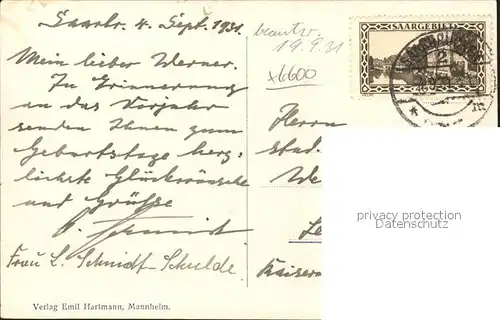 Saarbr. 4. Sept. 1931.
beantw.
19.9.31
x6600
SAARGEBIET
Mein lieber Werner.
Zu Erinnerung
an das Vorjahr
senden Ihnen zum
Geburtstage herz-
lichste Glückwünsche
und Grüße
Schmidt
Frau L. Schmidt-Schulde.
Herrn
stud.
We
Le
Kaisers
privacy protection
Datenschutz
Verlag Emil Hartmann, Mannheim.